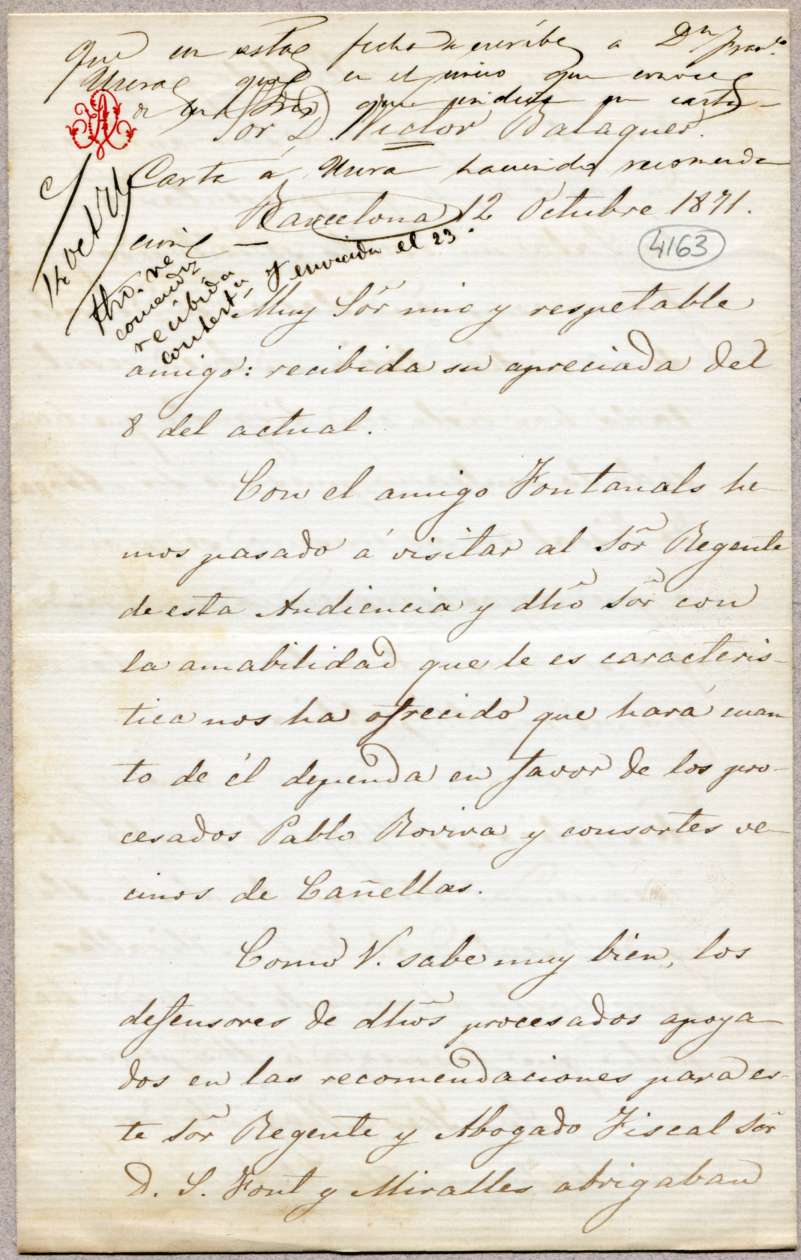 que en esta fecha escribe a Dn Franco
Mura que es el unico que conoce
Sor D. Victor Balaguer.
Carta á Mura haciendo recomenda
Barcelona 12 Octubre 1871.
cion
14 Oct 71
4163
recibida
y enviada el 23.
Muy Sór mio y respetable
amigo: recibida su apreciada del
8 del actual.
Con el amigo Fontanals he-
mos pasado á visitar al Sór Regente
de esta Audiencia y dhó Sór con
la amabilidad que le es caracteris-
tica nos ha ofrecido que hará cuan-
to de él dependa en favor de los pro-
cesados Pablo Rovira y consortes ve-
cinos de Cañellas.
Como V. sabe muy bien, los
defensores de dhós procesados apoya-
dos en las recomendaciones para es-
te Sór Regente y Abogado Fiscal Sór
D. S. Font y Miralles abrigaban